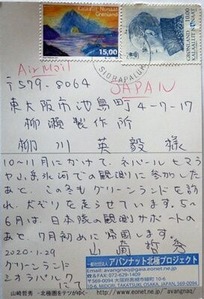 Kalaallit Nunaat
Grønland
15,00
KALAALLIT NUNAAT
SIORAPALUK
Air Mail
JAPAN
〒579-8064
東大阪市池島町4-7-17
柳瀬製作所
柳川英毅様
10〜11月にかけて、ネパールヒマラ
ヤ山、氷河での観測に参加したあ
と、この冬もグリーンランドを訪
れ、犬ぞりを走らせています。5〜
6月は、日本隊の観測サポートの
あと、7月初めに帰国します。
山崎哲秀
2020.1.29
グリーンランド
シオラパルクにて
アバンナット北極プロジェクト
山崎哲秀 －北極圏をテツがゆく
http://www.eonet.ne.jp/~avangnaq/